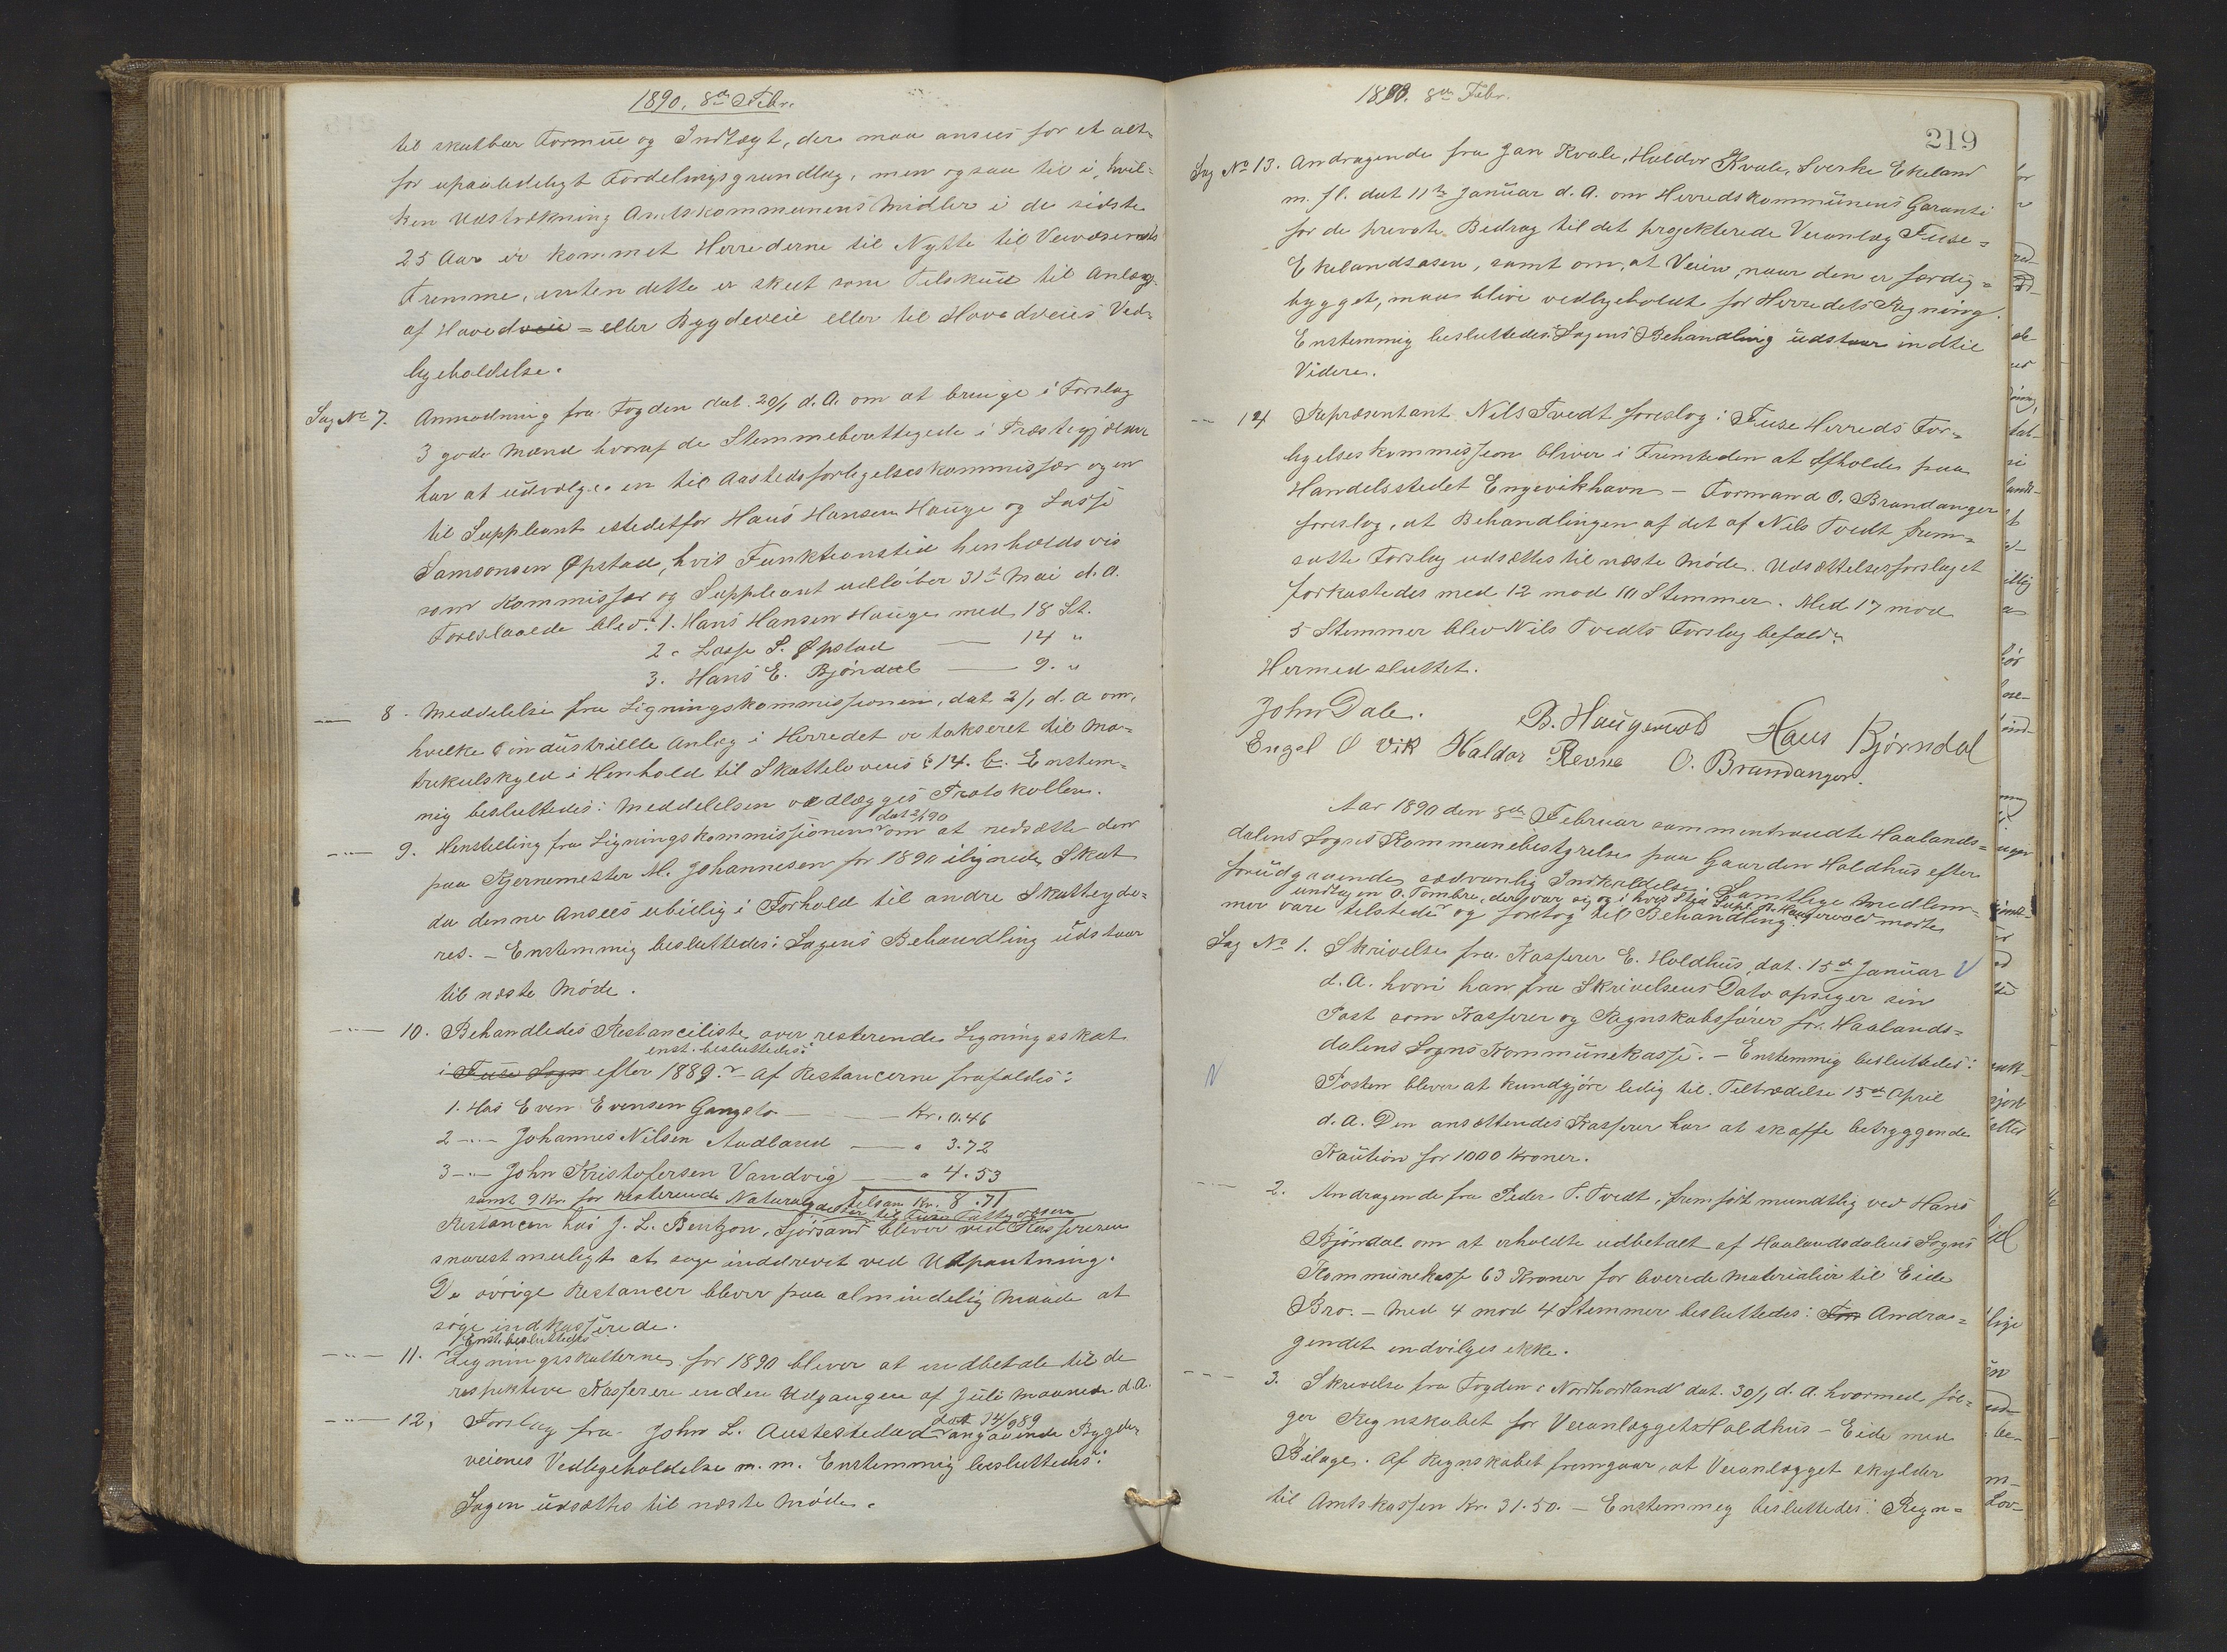 1890, 8de Febr.
til skatbar Formue og Indtægt, der maa ansees for et alt-
for upaalideligt Fordelingsgrundlag, men ogsaa til i, hvil-
ken Udstrækning Amtskommunens Midler i de sidste
25 Aar er kommet Herrederne til Nytte til Veivæsenets
Fremme, enten dette er skeet som Tilskud til Anlæg
af Hovedveie - eller Bygdeveie eller til Hovedveies Ved-
ligeholdelse.
Sag No 7. Anmodning fra Fogden dat. 20/1 d. A. om at bringe i Forslag
3 gode Mænd hvoraf de Stemmeberettigede i Præstegjældet
har at udvælge en til Aastedsforligelseskommissær og en
til Suppleant istedetfor Hans Hansen Hauge og Lasse
Samsonsen Øpstad, hvis Funktionstid henholdsvis
som Kommissær og Suppleant udløber 31te Mai d. A.
Foreslaaede blev: 1. Hans Hansen Hauge med 18 St.
2. Lasse S. Øpstad — 14 "
3. Hans E. Bjørndal — 9. "
—"— 8. Meddelelse fra Ligningskommissionen, dat. 2/1 d. A. om,
hvilke industrielle Anlæg i Herredet er takseret til Ma-
trikulskyld i Henhold til Skattelovens § 14. b. Enstem-
mig besluttedes: Meddelelsen vedlægges Protokollen.
dat 2/1 90
—"— 9. Henstilling fra Ligningskommissionen om at nedsætte den
paa Gjernemester M. Johannesen for 1890 ilignede Skat
da denne ansees ubillig i Forhold til andre Skatteyde-
res. — Enstemmig besluttedes: Sagens Behandling udstaar
til næste Møde.
—"— 10. Behandledes Restanceliste over resterende Ligningsskat
enst. besluttedes:
i Fuse Sogn efter 1889. — Af Restancerne frafaldes:
1. Hos Even Evensen Gangstø — Kr. 0.46
2 —"— Johannes Nilsen Audland — " 3.72
3 —"— John Kristofersen Vandvig — " 4.53
tilsam. Kr. 8.71
samt 9 Kr. for resterende Naturalydelser til Fuse Fattigvæsen
Restancen hos J. L. Bentzon, Sjørsand bliver ved Kassereren
snarest muligt at søge inddrevet ved Udpantning.
De øvrige Restancer bliver paa almindelig Maade at
søge indkasserede.
Enst. besluttedes
—"— 11. Ligningsskatterne for 1890 bliver at indbetale til de
respektive Kasserere inden Udgangen af Juli Maaned d. A.
dat 14/9 89
—"— 12, Forslag fra John L. Austestad angaaende Bygde-
veienes Vedligeholdelse m. m. Enstemmig besluttedes:
Sagen udsættes til næste Møde.
1890. 8de Febr.
219
Sag No 13. Andragende fra Jan Kvale, Haldor Kvale, Sverke Ekeland
m. fl. dat 11te Januar d. A. om Herredskommunens Garanti
for de private Bidrag til det projekterede Veianlæg Fuse-
Ekelandsosen, samt om, at Veien, naar den er færdig-
bygget, maa blive vedligeholdt for Herredets Regning.
Enstemmig besluttedes: Sagens Behandling udstaar indtil
Videre.
—"— 14 Repræsentant Nils Tvedt foreslog: Fuse Herreds For-
ligelseskommission bliver i Fremtiden at afholde paa
Handelsstedet Engevikhavn — Formand O. Brandanger
foreslog, at Behandlingen af det af Nils Tvedt frem-
satte Forslag udsættes til næste Møde. Udsættelsesforslaget
forkastedes med 12 mod 10 Stemmer. Med 17 mod
5 Stemmer blev Nils Tvedts Forslag bifaldt.
Hermed sluttet.
John Dale. B. Haugervold Hans Bjørndal
Engel O Vik Haldor Revne O. Brandanger.
Aar 1890 den 8de Februar sammentraadte Haalands-
dalens Sogns Kommunebestyrelse paa Gaarden Holdhus efter
forudgaaende sædvanlig Indkaldelse. Samtlige Medlem-
undtagen O. Tombre, der var syg og i hvis Sted Supl. B. Haugervold mødte
mer vare tilstede og foretog til Behandling:
Sag No 1. Skrivelse fra Kasserer E. Holdhus, dat. 15de Januar
d. A. hvori han fra Skrivelsens Dato opsiger sin
Post som Kasserer og Regnskabsfører for Haalands-
dalens Sogns Kommunekasse. — Enstemmig besluttedes:
Posten bliver at kundgjøre ledig til Tiltrædelse 15de April
d. A. Den ansættendes Kasserer har at skaffe betryggende
Kaution for 1000 Kroner.
—"— 2. Andragende fra Peder T. Tvedt, fremført mundtlig ved Hans
Bjørndal om at erholdte udbetalt af Haalandsdalens Sogns
Kommunekasse 63 Kroner for leverede Materialier til Eide
Bro. — Med 4 mod 4 Stemmer besluttedes: For Andra-
gendet indvilges ikke.
—"— 3. Skrivelse fra Fogden i Nordhordland dat. 30/1 d. A. hvormed føl-
ger Regnskabet for Veianlægget Holdhus - Eide med
Bilage. Af Regnskabet fremgaar, at Veianlægget skylder
til Amtskassen Kr. 31.50. — Enstemmig besluttedes: Regn-